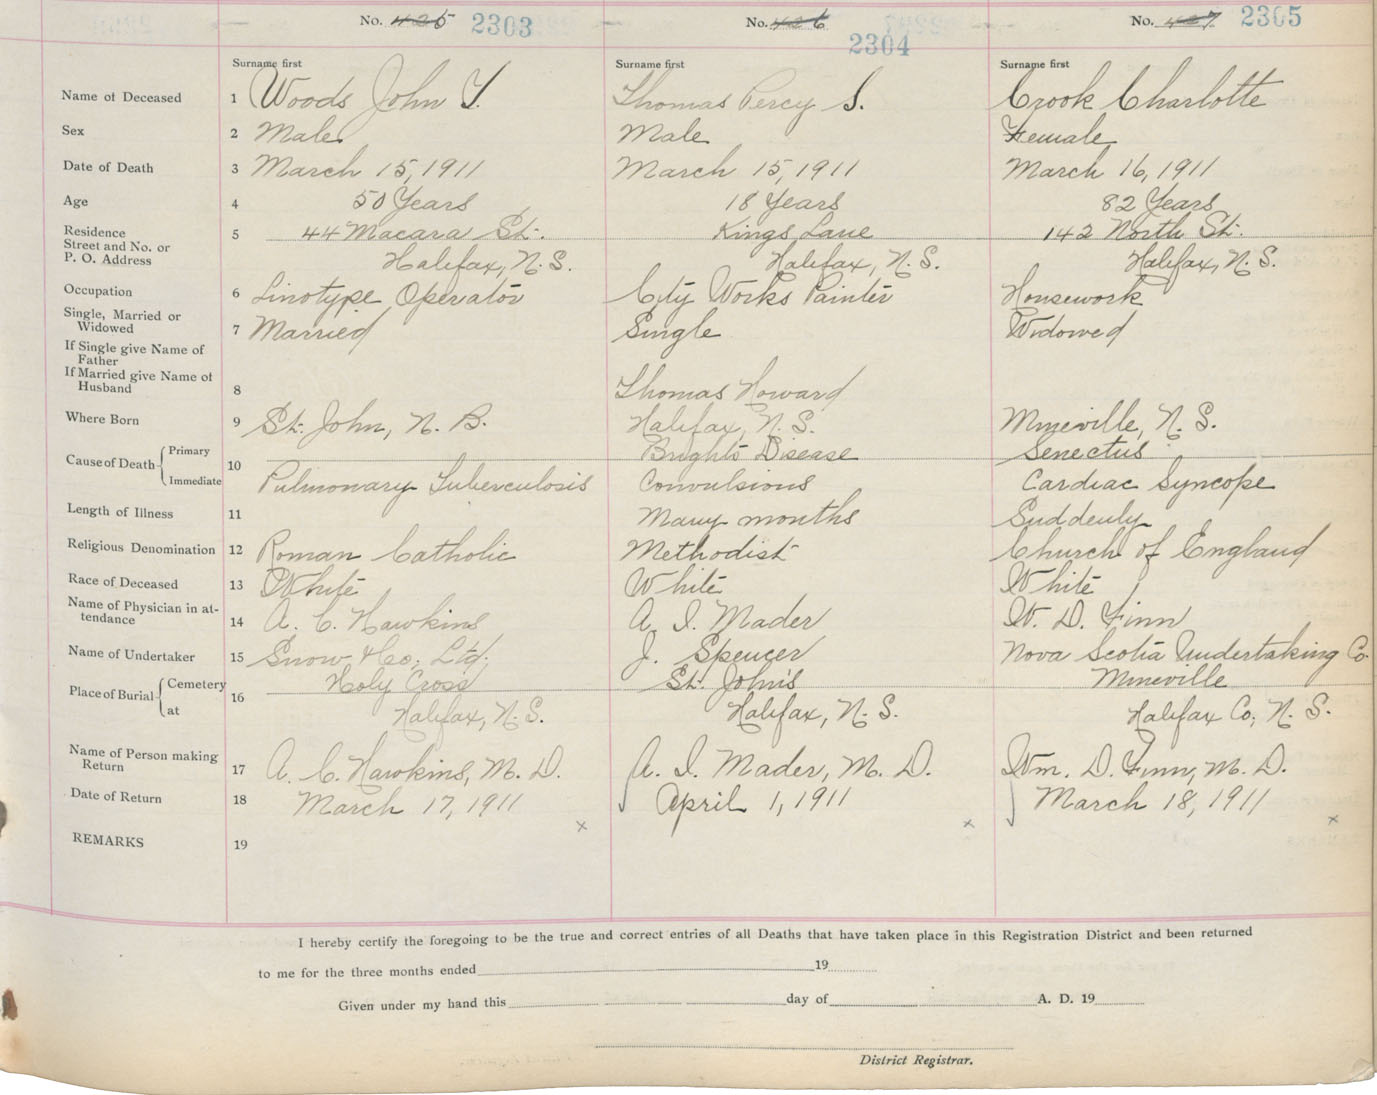 No. 425 2303 No. 426 2304 No. 427 2305
Surname first Surname first Surname first
Name of Deceased 1 Woods John T. Thomas Percy S. Crook Charlotte
Sex 2 Male Male Female
Date of Death 3 March 15, 1911 March 15, 1911 March 16, 1911
Age 4 50 Years 18 Years 82 Years
Residence 5 44 Macara St. Kings Lane 142 North St.
Street and No. or
P. O. Address Halifax, N.S. Halifax, N.S. Halifax, N.S.
Occupation 6 Linotype Operator City Works Painter Housework
Single, Married or
Widowed 7 Married Single Widowed
If Single give Name of
Father
If Married give Name of
Husband 8 Thomas Howard
Where Born 9 St. John, N. B. Halifax, N. S. Mineville, N. S.
Cause of Death Primary 10 Brights Disease Senectus
Immediate Pulmonary Tuberculosis Convulsions Cardiac Syncope
Length of Illness 11 Many months Suddenly
Religious Denomination 12 Roman Catholic Methodist Church of England
Race of Deceased 13 White White White
Name of Physician in at-
tendance 14 A. C. Hawkins A. I. Mader W. D. Finn
Name of Undertaker 15 Snow & Co; Ltd. J. Spencer Nova Scotia Undertaking Co.
Place of Burial Cemetery 16 Holy Cross St. John's Mineville
at Halifax, N. S. Halifax, N. S. Halifax Co; N. S.
Name of Person making
Return 17 A. C. Hawkins, M. D. A. I. Mader, M. D. Wm. D. Finn, M. D.
Date of Return 18 March 17, 1911 April 1, 1911 March 18, 1911
x x x
REMARKS 19
I hereby certify the foregoing to be the true and correct entries of all Deaths that have taken place in this Registration District and been returned
to me for the three months ended 19
Given under my hand this day of A. D. 19
District Registrar.